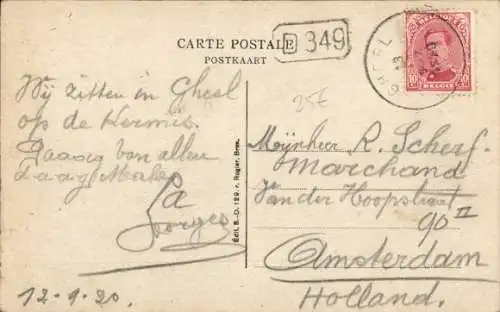 CARTE POSTALE
POSTKAART
D 349
GHEEL
BELGIQUE
10 10
BELGIE
25E
Wij zitten in Gheel
op de Kermis.
van allen
La
12.9.20.
Édit. B.-D. 129, r. Rogier, Brux.
Mijnheer R. Scherf.
Marchand
van der Hoopstraat
90 II
Amsterdam
Holland.